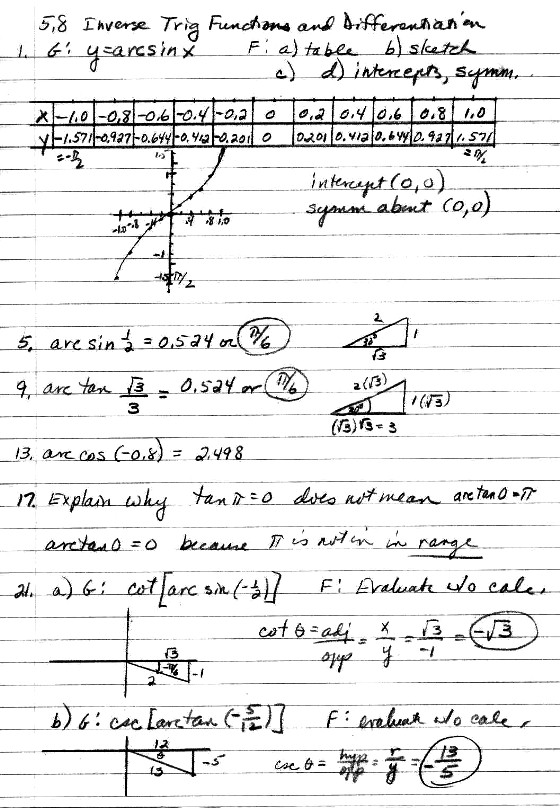 5.8 Inverse Trig Functions and Differentiation
1. G: y=arcsin x F: a) table b) sketch
c) d) intercepts, symm.
x -1.0 -0.8 -0.6 -0.4 -0.2 0 0.2 0.4 0.6 0.8 1.0
y -1.571 -0.927 -0.644 -0.412 -0.201 0 0.201 0.412 0.644 0.927 1.571
=-π/2 =π/2
1.5
1
intercept (0,0)
symm about (0,0)
-1.0 -.8 -.4 .4 .8 1.0
-1
-1.5 π/2
5. arc sin 1/2 = 0.524 or π/6 2 1 30° √3
9. arc tan √3/3 = 0.524 or π/6 2(√3) 1(√3) 30° (√3)√3=3
13. arc cos (-0.8) = 2.498
17. Explain why tan π=0 does not mean arctan 0=π
arctan 0 = 0 because π is not in in range
21. a) G: cot[arc sin (-1/2)] F: Evaluate w/o calc.
cot θ = adj/opp = x/y = √3/-1 = -√3
√3 -π/6 -1 2
b) G: csc [arctan (-5/12)] F: evaluate w/o calc.
12 θ -5 13 csc θ = hyp/opp = r/y = -13/5